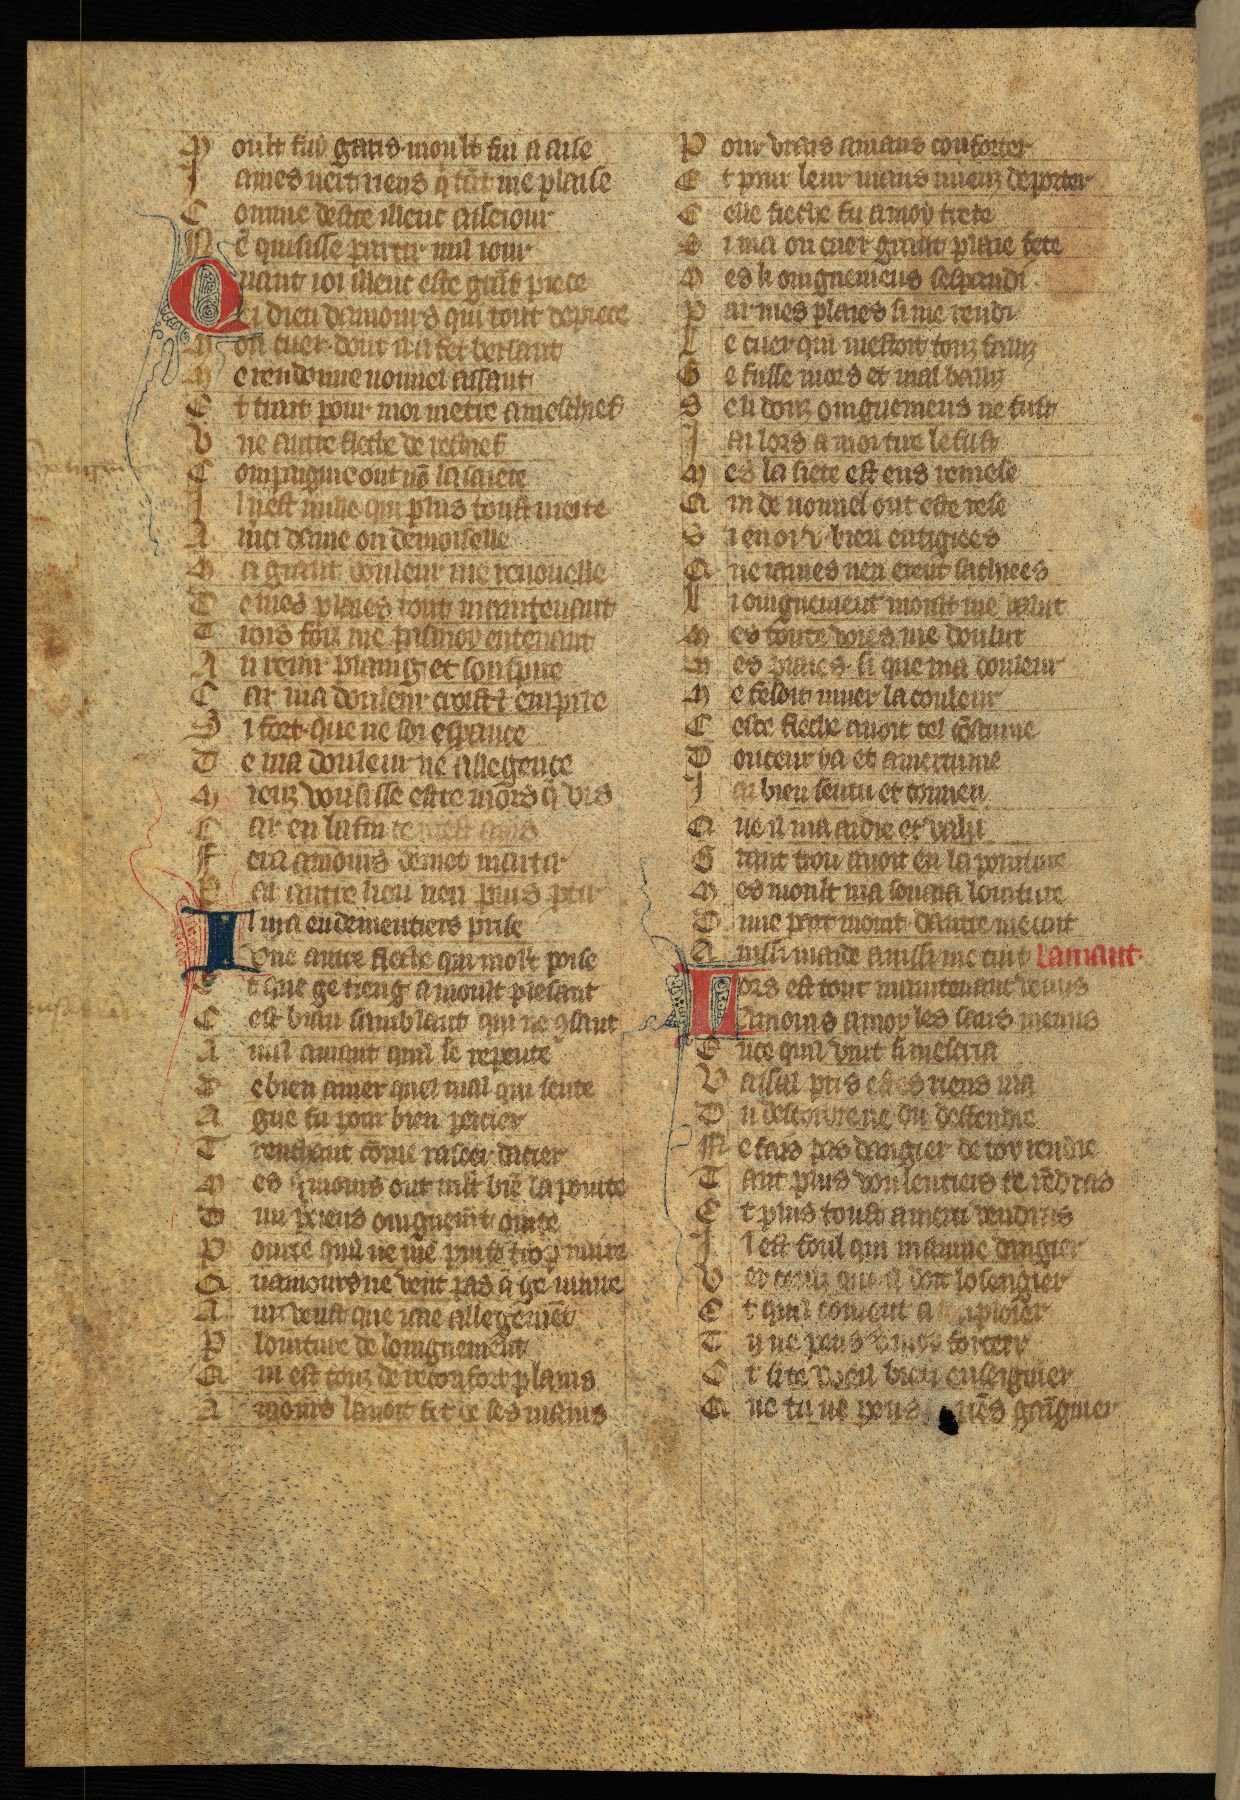 M oult fui garis moult fui a aise
J ames neit riens q̄ tāt me plaise
C omme destre illeuc a seiour
N ē quisisse partir nul iour
Quant ioi illeuc este grāt piece
Li dieu damours qui tout depiece
M on cuer dont il a fet bersaut
M e redonne nouuel assaut
E t trait pour moi metre a meschief
V ne autre fleche de rechief
C ompaignie ont nō la saiete
I l nest nulle qui plus tost mete
A merci dame ou demoiselle
L a grant douleur me renouelle
D e mes plaies tout maintenant
T rois foiz me pasmoy en tenant
A u reuir plaing et souspire
C ar ma douleur croist et empire
S i fort que ne soi esperance
D e ma douleur ne allegence
M ieuz vousisse estre mors q̄ vis
C ar en la fin ce mest auis
F era amours de moi martir
P ar autre lieu nen puis partir
Il ma endementiers prise
Vne autre fleche qui molt poise
E t que ge tieng a moult plesant
C est biau samblant qui ne ꝯsant
A nul amant quil se repente
D e bien amer quel mal qui sente
A gue fu pour bien percier
T renchant cōme rasoir dacier
M es amours out mlt biē la pointe
D un precieus oignemēt ointe
P ource quil ne me puist trop nuire
Q uamours ne veut pas q̄ ge muire
A ins veust que iaie allegemēt
P lointure de loignement
Q ui est touz de reconfort plains
A mours lauoit fet de ses mains
P our vrais amans conforter
E t pour leur maus mieuz deporter
C elle fleche fu a moy trete
S i ma ou cuer grant plaie fete
M es li oignemens sespandi
P ar mes plaies si me rendi
L e cuer qui mestoit touz failliz
G e fusse mors et mal bailliz
S e li douz oignemens ne fust
J a lors a moi tire le fust
M es la fiete est ens remese
Q ui de nouuel ont este rese
S i en ot v bien enfigiees
Q ue iames nen erent sachiees
L i oignement moult me valut
M es toute voies me doulut
M es plaies si que ma douleur
M e fesoit muer la couleur
C este fleche auoit tel coustume
D ouceur y a et amertume
J ai bien sentu et conneu
Q ue il ma aidie et valu
G rant trou auoit en la pointure
M es moult ma souaia lointure
D une part moint dautre me cuit
A inssi maide ainssi me nuit Lamant
Lors est tout maintenant venus
Amours a moy les saus menus
E nce quil vint si mescria
V assal pris estes riens nia
D u destourne ne du deffendre
N e fais pas dangier de toy rendre
T ant plus voulentiers te rēdras
E t plus tost a merci vendras
I l est foul qui maine dangier
V ers cellui que il doit losengier
E t quil couient a supploier
T u ne peus vers moi forcier
E t si te veil bien enseignier
Q ue tu ne peus riens gaaignier